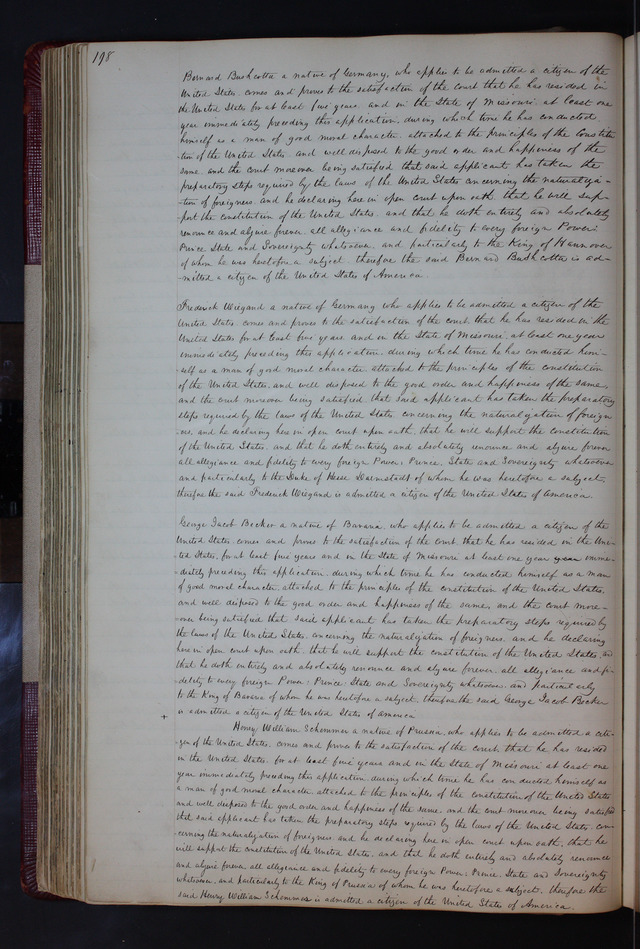 198
Bernard Bushcotta a native of Germany, who applies to be admitted a citizen of the
United States, comes and proves to the satisfaction of the court that he has resided in
the United States for at least five years and in the State of Missouri at least one
year immediately preceding this application, during which time he has conducted
himself as a man of good moral character, attached to the principles of the Constitu
-tion of the United States and well disposed to the good order and happiness of the
same, and the court moreover being satisfied that said applicant has taken the
preparatory steps required by the laws of the United States concerning the naturaliza-
-tion of foreigners, and he declaring here in open court upon oath, that he will sup-
port the constitution of the United States, and that he doth entirely and absolutely
renounce and abjure forever all allegiance and fidelity to every foreign Power,
Prince State and Sovereignty whatsoever, and particularly to the King of Hannover
of whom he was heretofore a subject therefore the said Bernard Bushcotta is ad-
-mitted a citizen of the United States of America.
Frederick Wiegand a native of Germany who applies to be admitted a citizen of the
United States, comes and proves to the satisfaction of the court, that he has resided in the
United States for at least five years and in the State of Missouri, at least one year
immediately preceding this application, during which time he has conducted him-
-self as a man of good moral character, attached to the principles of the constitution
of the United States, and well disposed to the good order and happiness of the same,
and the court moreover being satisfied that said applicant has taken the preparatory
steps required by the laws of the United States concerning the naturalization of foreign
-ers, and he declaring here in open court upon oath, that he will support the constitution
of the United States, and that he doth entirely and absolutely renounce and abjure forever
all allegiance and fidelity to every foreign Power, Prince, State and Sovereignty whatsoever
and particularly to the Duke of Hesse Darmstadt of whom he was heretofore a subject,
therefore the said Frederick Wiegand is admitted a citizen of the United States of America.
George Jacob Becker a native of Bavaria, who applies to be admitted a citizen of the
United States, comes and proves to the satisfaction of the court, that he has resided in the Uni-
ted States, for at least five years and in the State of Missouri at least one year imme-
-diately preceding this application, during which time he has conducted himself as a man
of good moral character attached to the principles of the constitution of the United States,
and well disposed to the good order and happiness of the same, and the court more-
-over being satisfied that said applicant has taken the preparatory steps required by
the laws of the United States, concerning the naturalization of foreigners, and he declaring
here in open court upon oath, that he will support the constitution of the United States, and
that he doth entirely and absolutely renounce and abjure forever all allegiance and fi-
-delity to every foreign Power, Prince, State and Sovereignty whatsoever, and particularly
to the King of Bavaria of whom he was heretofore a subject, therefore the said George Jacob Becker
is admitted a citizen of the United States of America
+ Henry William Schemmer a native of Prussia, who applies to be admitted a citi-
-zen of the United States, comes and proves to the satisfaction of the court, that he has resided
in the United States, for at least five years and in the State of Missouri at least one
year immediately preceding this application, during which time he has conducted himself as
a man of good moral character, attached to the principles of the constitution of the United States
and well disposed to the good order and happiness of the same, and the court moreover being satisfied
that said applicant has taken the preparatory steps required by the laws of the United States, con-
cerning the naturalization of foreigners and he declaring here in open court upon oath, that he
will support the constitution of the United States, and that he doth entirely and absolutely renounce
and abjure forever all allegiance and fidelity to every foreign Power, Prince, State and Sovereignty
whatsoever, and particularly to the King of Prussia of whom he was heretofore a subject, therefore the
said Henry William Schemmer is admitted a citizen of the United States of America.